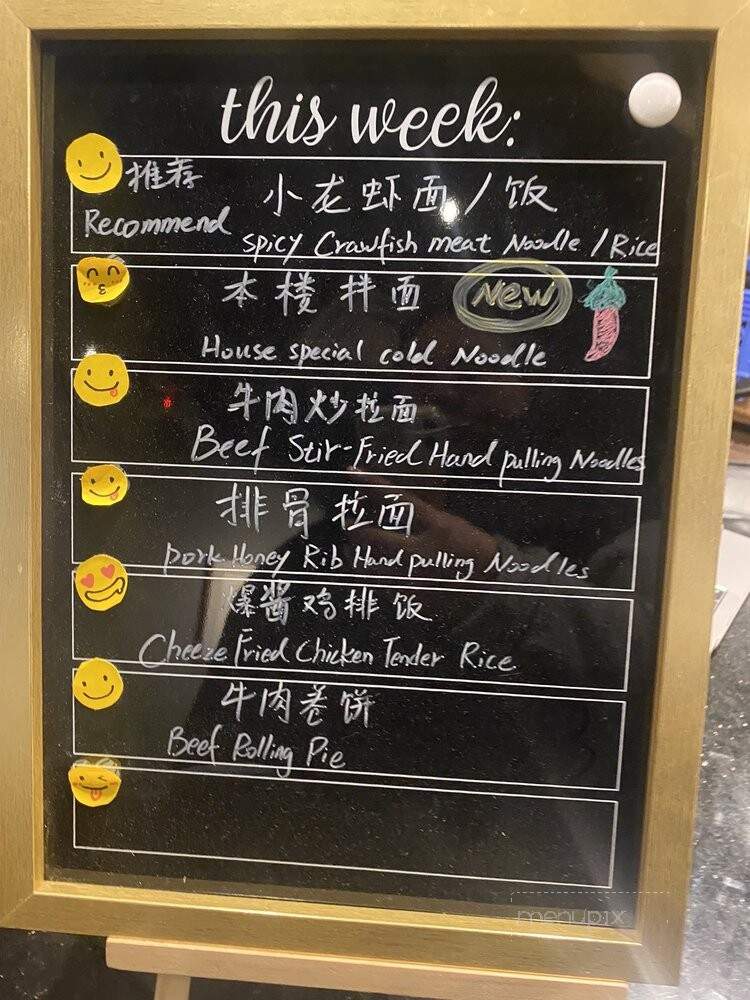 this week:
推荐
小龙虾面/饭
Recommend
spicy Crawfish meat Noodle / Rice
本楼拌面
New
House special cold Noodle
牛肉炒拉面
Beef Stir-Fried Hand pulling Noodles
排骨拉面
pork Honey Rib Hand pulling Noodles
爆酱鸡排饭
Cheeze Fried Chicken Tender Rice
牛肉卷饼
Beef Rolling Pie
menupix